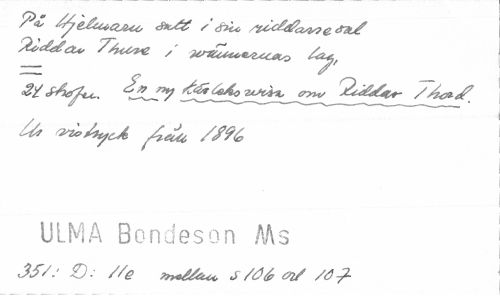 På Hjelmarn satt i sin riddarresal
Riddar Thure i wännernas lag,
24 strofer. En ny Kärleksvisa om Riddar Thord.
Ur vistryck från 1896
ULMA Bondeson Ms
351: D: 11e mellan s 106 och 107